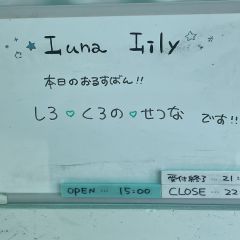 Luna Lily
本日のおるすばん!!
しろ♡くろの♡せつな です!!
受付終了… 21:
OPEN … 15:00
CLOSE … 22